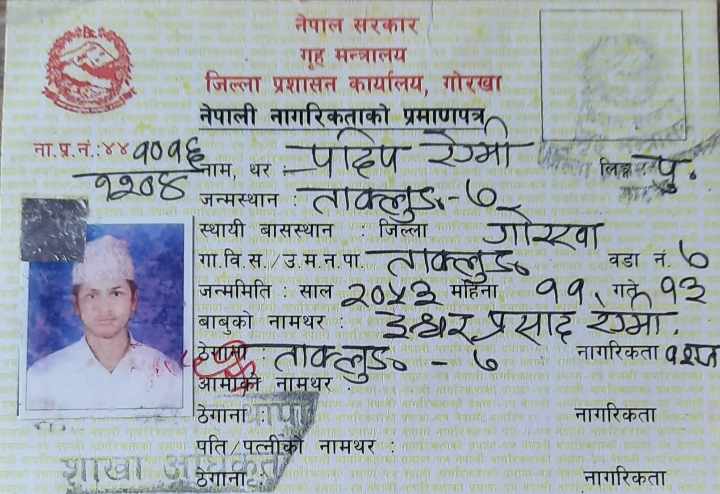 नेपाल सरकार
गृह मन्त्रालय
जिल्ला प्रशासन कार्यालय, गोरखा
नेपाली नागरिकताको प्रमाणपत्र
ना.प्र.नं.:४४ १०१६
११०४
नाम, थर : प्रदिप रेग्मी लिङ्ग : पु.
जन्मस्थान : ताक्लुङ-७
स्थायी बासस्थान : जिल्ला गोरखा
गा.वि.स./उ.म.न.पा. ताक्लुङ वडा नं. ७
जन्ममिति : साल २०५३ महिना ११ गते १३
बाबुको नामथर : ईश्वर प्रसाद रेग्मी
ठेगाना : ताक्लुङ - ७ नागरिकता वंशज
आमाको नामथर :
ठेगाना : नागरिकता
पति/पत्नीको नामथर :
शाखा अधिकृत
ठेगाना : नागरिकता